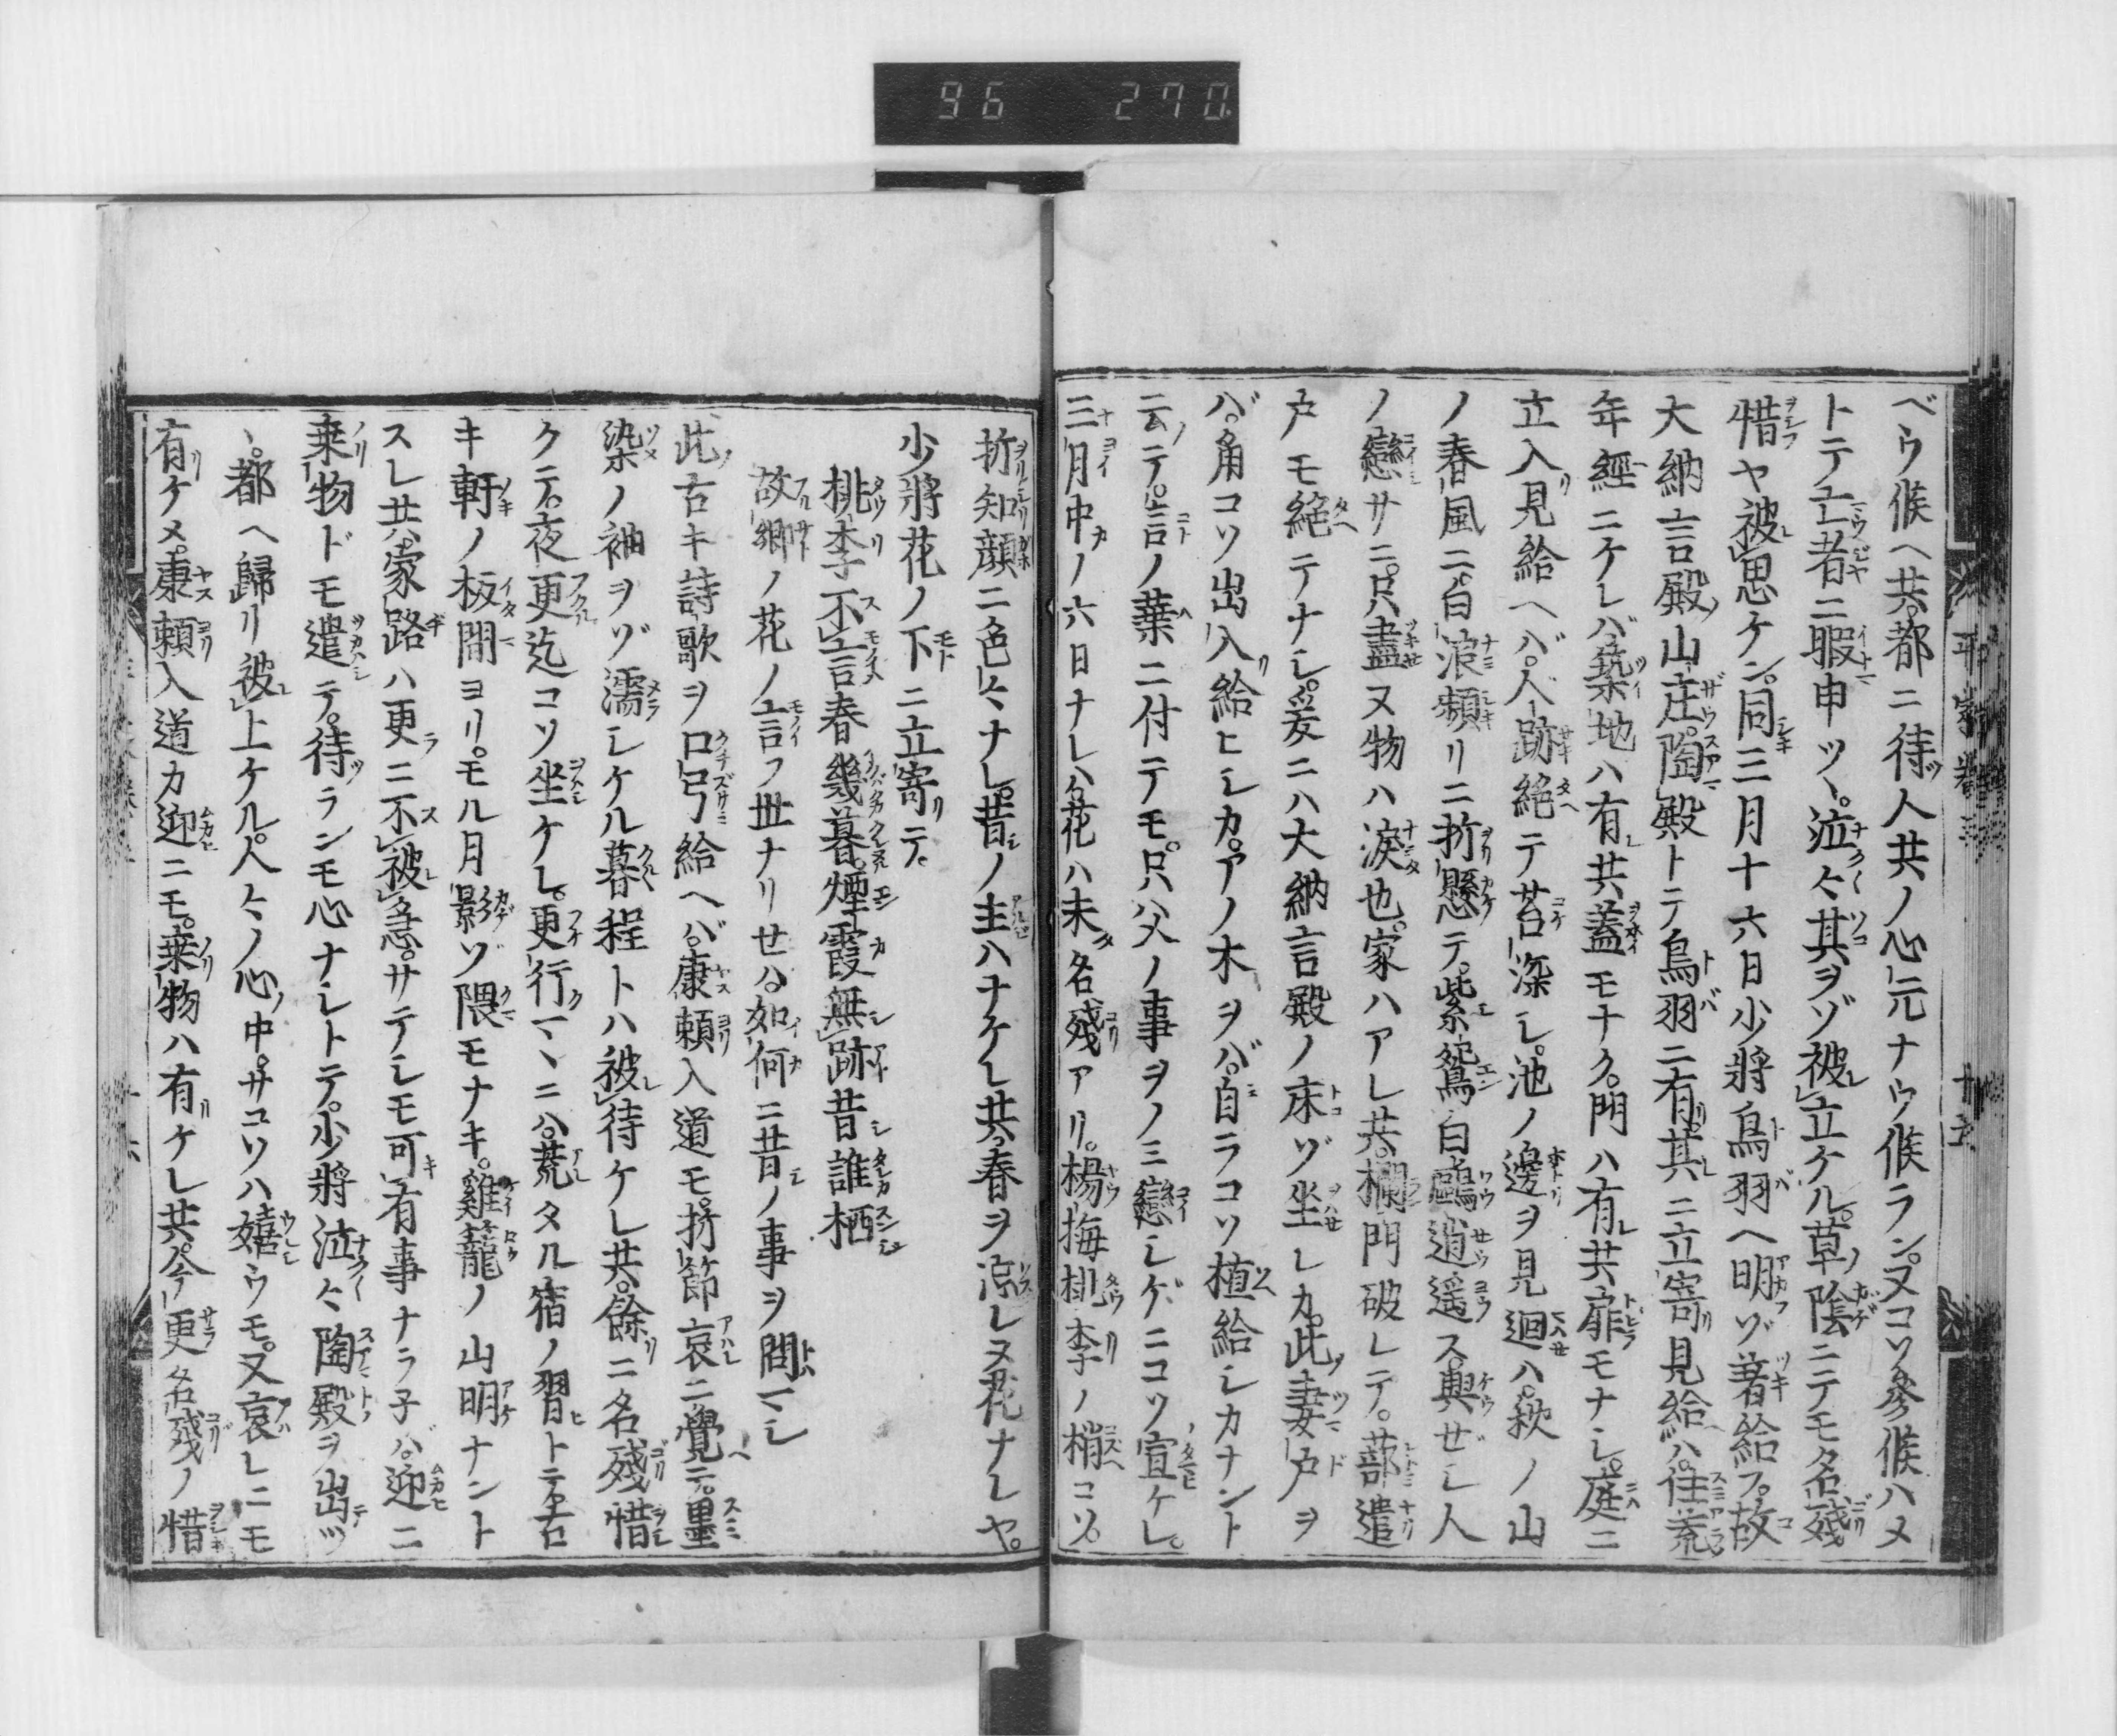 96 270
平家巻三 十五
ベウ候ヘ共。都ニ待人共ノ心元ナウ候ラン。又コソ參候ハメ
トテ。亡者ニ暇申ツヽ。泣々其ヲゾ被立ケル。草ノ陰ニテモ名殘
惜ヤ被思ケン。同三月十六日少將鳥羽ヘ明ゾ著給フ。故
大納言殿ノ山庄。陶殿トテ鳥羽ニ有。其ニ立寄見給ヘハ。住荒
年經ニケレバ。築地ハ有共蓋モナク。門ハ有共扉モナシ。庭ニ
立入見給ヘバ。人跡絶テ苔深シ。池ノ邊ヲ見廻ハ。秋ノ山
ノ春風ニ。白浪頻リニ折懸テ。紫鴛白鷗逍遥ス。興ゼシ人
ノ戀サニ。只盡ヌ物ハ涙也。家ハアレ共。欄門破レテ。蔀遣
戸モ絶テナシ。爰ニハ大納言殿ノ床ゾ坐シカ。此妻戸ヲ
バ。角コソ出入給ヒシカ。アノ木ヲバ。自ラコソ植給シカナント
云テ。言ノ葉ニ付テモ。只父ノ事ヲノミ戀シゲニコソ宣ケレ。
三月中ノ六日ナレハ。花ハ未名殘アリ。楊梅桃李ノ梢コソ。
折知顔ニ色々ナレ。昔ノ主ハナケレ共。春ヲ涼レヌ花ナレヤ。
少將花ノ下ニ立寄テ。
桃李不言春幾暮。煙霞無跡昔誰栖
故郷ノ花ノ言フ世ナリセハ。如何ニ昔ノ事ヲ問マシ
此古キ詩歌ヲ口号給ヘバ。康頼入道モ。折節哀ニ覺テ。墨
染ノ袖ヲゾ濡シケル。暮程トハ被待ケレ共。餘ニ名殘惜
クテ。夜更迄コソ坐ケレ。更行マヽニハ。荒タル宿ノ習トテ。古
キ軒ノ板間ヨリ。モル月影ゾ隈モナキ。雞籠ノ山明ナント
スレ共。家路ハ更ニ不被急。サテシモ可有事ナラ子バ。迎ニ
乗物ドモ遣テ。待ランモ心ナシトテ。少將泣々陶殿ヲ出ツ
ヽ。都ヘ歸リ被上ケル。人々ノ心ノ中。サコソハ嬉ウモ。又哀レニモ
有ケメ。康頼入道カ迎ニモ。乗物ハ有ケレ共。今更名殘ノ惜